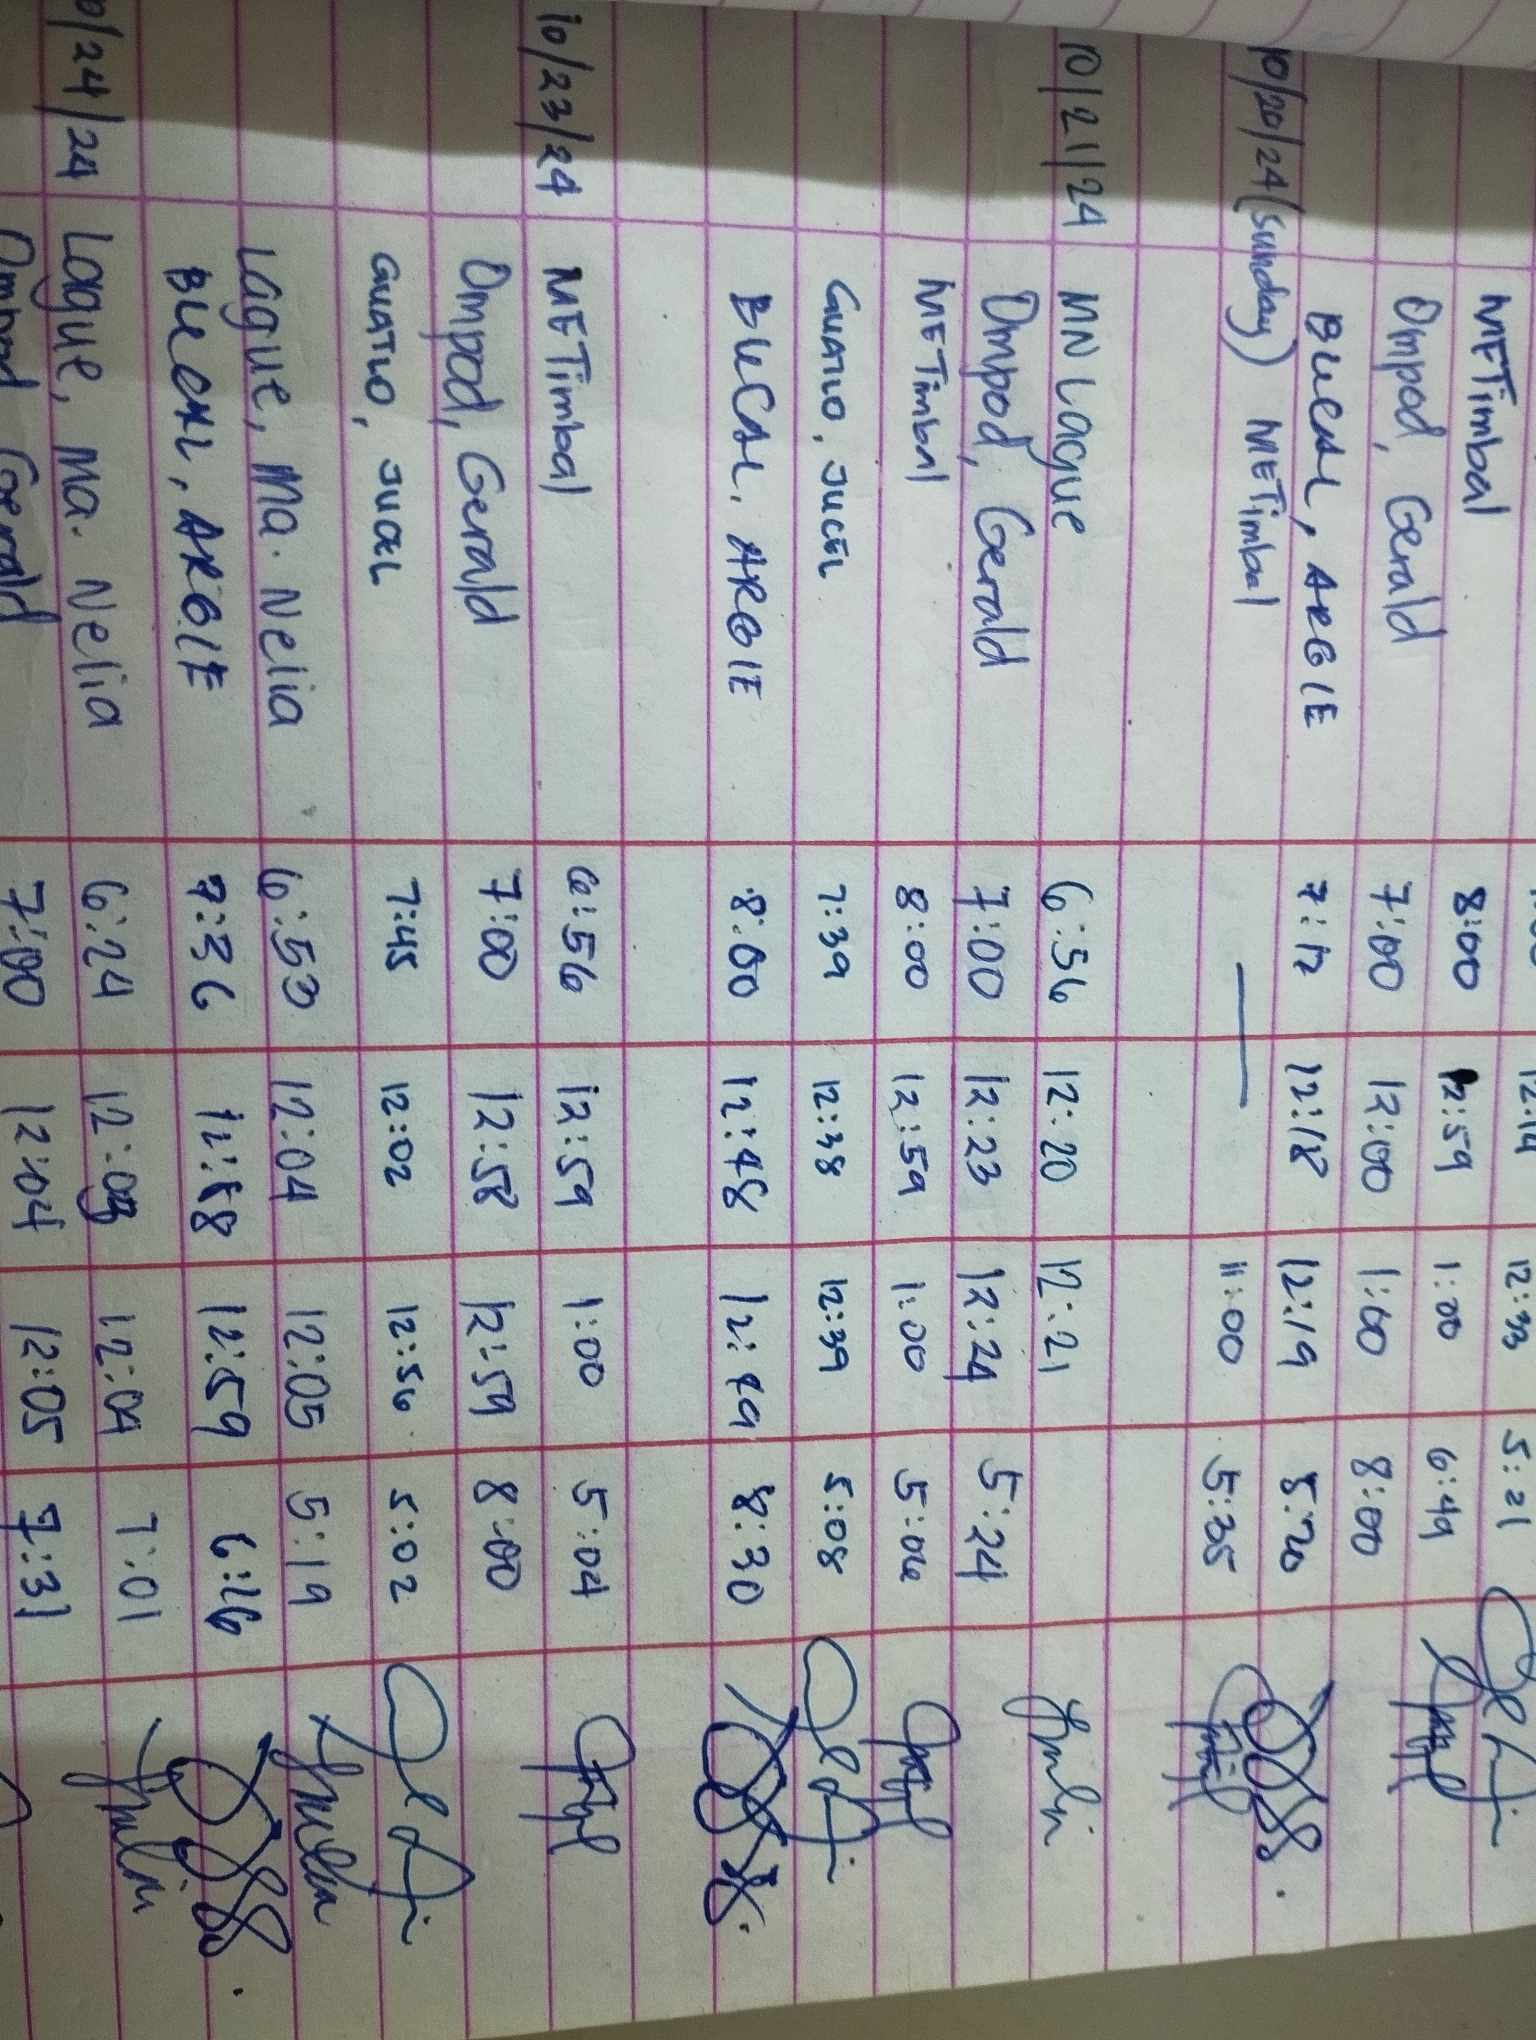 12:14 12:33 5:21
METimbal 8:00 12:59 1:00 6:49
Ompod, Gerald 7:00 12:00 1:00 8:00
BUCAL, ARGIE 7:12 12:18 12:19 8:20
10/20/24 (Sunday) METimbal — 11:00 5:35
10/21/24 MN Lague 6:56 12:20 12:21
Ompod, Gerald 7:00 12:23 12:24 5:24
METimbal 8:00 12:59 1:00 5:06
GUATLO, JUCEL 7:39 12:38 12:39 5:08
BUCAL, ARGIE 8:00 12:48 12:49 8:30
10/23/24 METimbal 6:56 12:59 1:00 5:04
Ompod, Gerald 7:00 12:58 12:59 8:00
GUATLO, JUCEL 7:45 12:02 12:56 5:02
Lague, Ma. Nelia 6:53 12:04 12:05 5:19
BUCAL, ARGIE 7:36 12:59 6:26
10/24/24 Lague, Ma. Nelia 6:24 12:03 12:04 7:01
Ompod Gerald 7:00 12:04 12:05 7:31